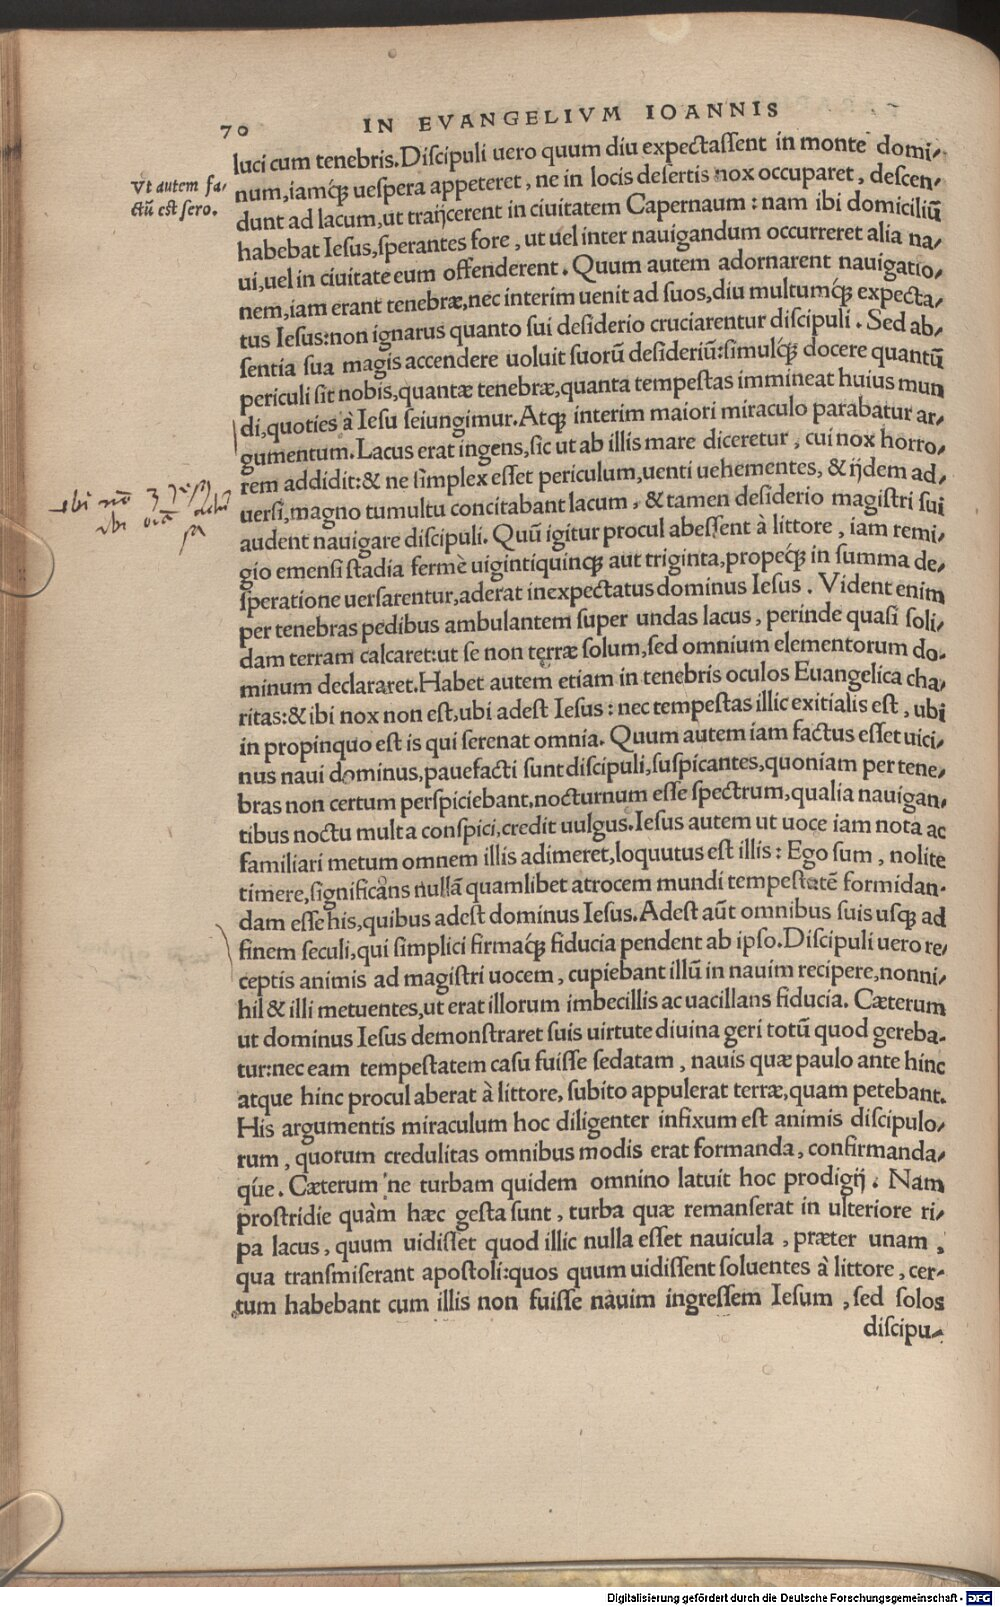 70 IN EVANGELIVM IOANNIS
luci cum tenebris. Diſcipuli uero quum diu expectaſſent in monte domi/
Vt autem fa/
ctũ est ſero.
num, iamq́ꝫ ueſpera appeteret, ne in locis deſertis nox occuparet, deſcen/
dunt ad lacum, ut traijcerent in ciuitatem Capernaum: nam ibi domiciliũ
habebat Ieſus, ſperantes fore, ut uel inter nauigandum occurreret alia na/
ui, uel in ciuitate eum offenderent. Quum autem adornarent nauigatio/
nem, iam erant tenebræ, nec interim uenit ad ſuos, diu multumq́ꝫ expecta/
tus Ieſus: non ignarus quanto ſui deſiderio cruciarentur diſcipuli. Sed ab/
ſentia ſua magis accendere uoluit ſuorũ deſideriũ: ſimulq́ꝫ docere quantũ
periculi ſit nobis, quantæ tenebræ, quanta tempeſtas immineat huius mun
di, quoties à Ieſu ſeiungimur. Atqꝫ interim maiori miraculo parabatur ar/
gumentum. Lacus erat ingens, ſic ut ab illis mare diceretur, cui nox horro/
rem addidit: & ne ſimplex eſſet periculum, uenti uehementes, & ijdem ad/
uerſi, magno tumultu concitabant lacum, & tamen deſiderio magiſtri ſui
audent nauigare diſcipuli. Quũ igitur procul abeſſent à littore, iam remi/
gio emenſi ſtadia fermè uigintiquinqꝫ aut triginta, propeq́ꝫ in ſumma de/
ſperatione uerſarentur, aderat inexpectatus dominus Ieſus. Vident enim
per tenebras pedibus ambulantem ſuper undas lacus, perinde quaſi ſoli/
dam terram calcaret: ut ſe non terræ ſolum, ſed omnium elementorum do-
minum declararet. Habet autem etiam in tenebris oculos Euangelica cha/
ritas: & ibi nox non eſt, ubi adeſt Ieſus: nec tempeſtas illic exitialis eſt, ubi
in propinquo eſt is qui ſerenat omnia. Quum autem iam factus eſſet uici/
nus naui dominus, pauefacti ſunt diſcipuli, ſuſpicantes, quoniam per tene/
bras non certum perſpiciebant, nocturnum eſſe ſpectrum, qualia nauigan/
tibus noctu multa conſpici, credit uulgus. Ieſus autem ut uoce iam nota ac
familiari metum omnem illis adimeret, loquutus eſt illis: Ego ſum, nolite
timere, ſignificans nullã quamlibet atrocem mundi tempeſtatẽ formidan-
dam eſſe his, quibus adeſt dominus Ieſus. Adeſt aũt omnibus ſuis uſqꝫ ad
finem ſeculi, qui ſimplici firmaq́ꝫ fiducia pendent ab ipſo. Diſcipuli uero re/
ceptis animis ad magiſtri uocem, cupiebant illũ in nauim recipere, nonni/
hil & illi metuentes, ut erat illorum imbecillis ac uacillans fiducia. Cæterum
ut dominus Ieſus demonſtraret ſuis uirtute diuina geri totũ quod gereba-
tur: nec eam tempeſtatem caſu fuiſſe ſedatam, nauis quæ paulo ante hinc
atque hinc procul aberat à littore, ſubito appulerat terræ, quam petebant.
His argumentis miraculum hoc diligenter infixum eſt animis diſcipulo/
rum, quorum credulitas omnibus modis erat formanda, confirmanda/
q́ue. Cæterum ne turbam quidem omnino latuit hoc prodigij. Nam
proſtridie quàm hæc geſta ſunt, turba quæ remanſerat in ulteriore ri/
pa lacus, quum uidiſſet quod illic nulla eſſet nauicula, præter unam,
qua tranſmiſerant apoſtoli: quos quum uidiſſent ſoluentes à littore, cer-
tum habebant cum illis non fuiſſe nauim ingreſſem Ieſum, ſed ſolos
diſcipu/
Digitalisierung gefördert durch die Deutsche Forschungsgemeinschaft - DFG